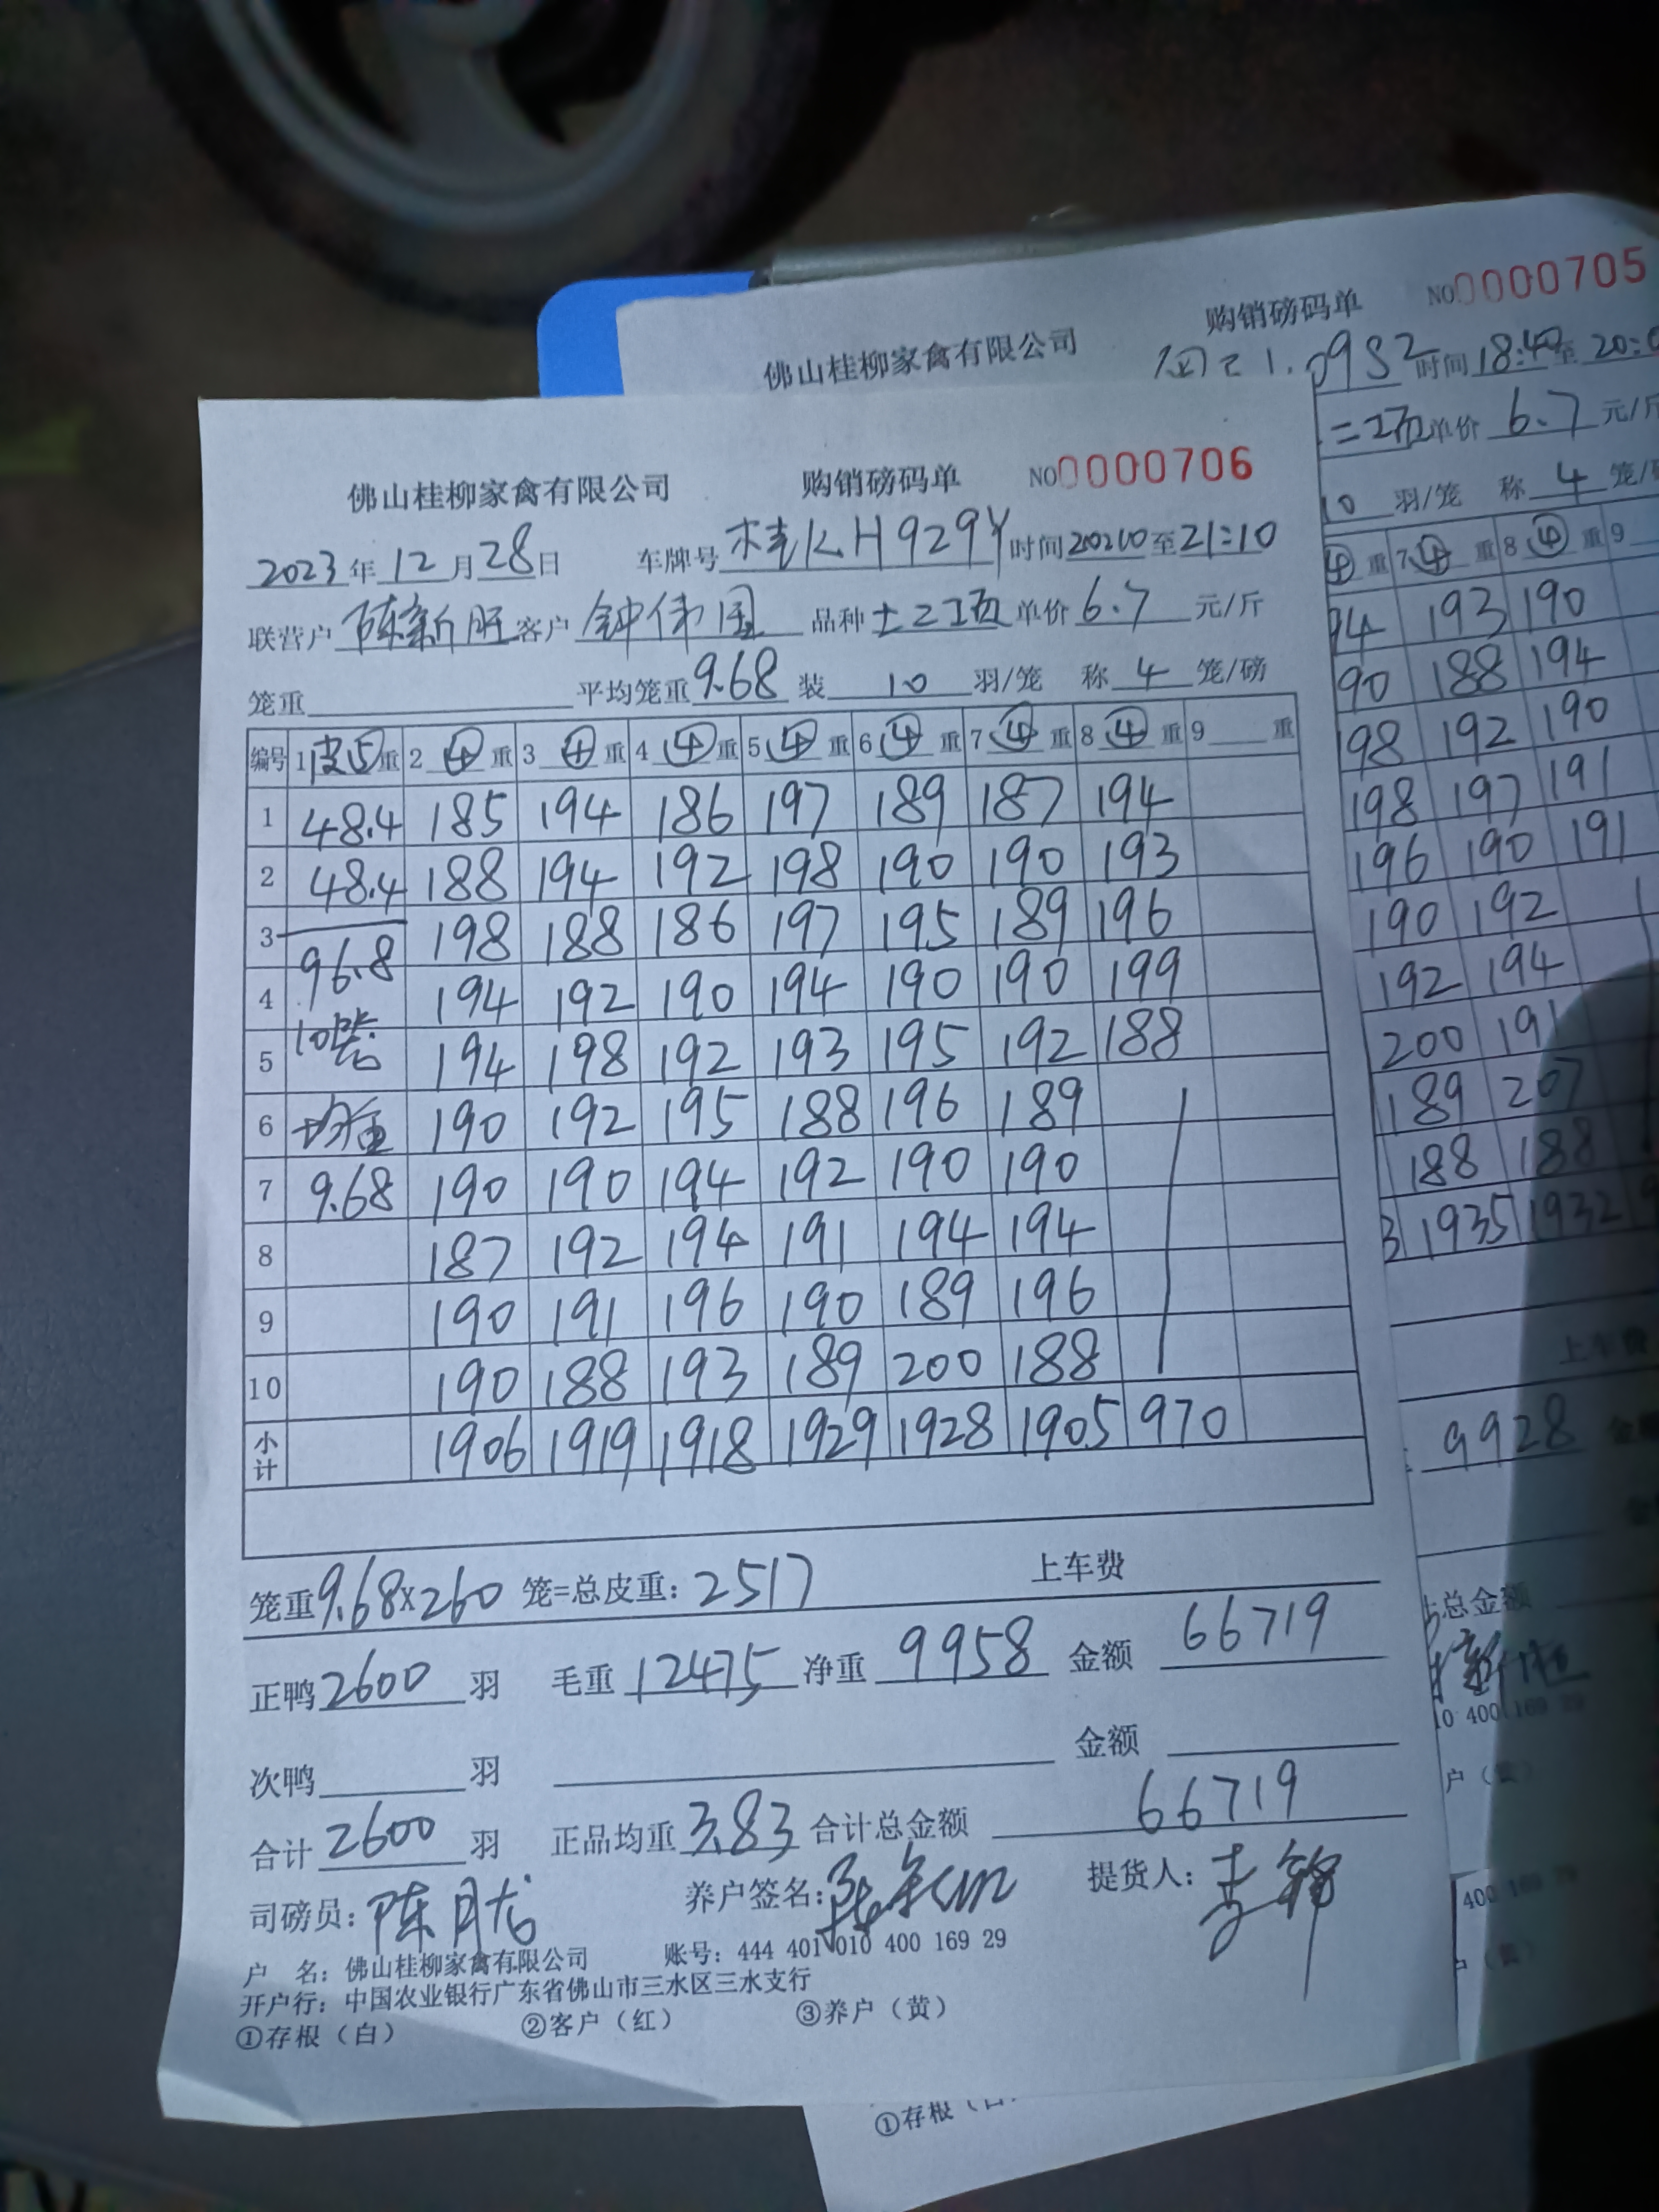 佛山桂柳家禽有限公司 购销磅码单 NO0000705
时间18:40至20:0
二项单价 6.7 元/斤
10 羽/笼 称 4 笼/磅
④重 7④重 8④重 9
94 193 190
90 188 194
98 192 190
198 197 191
196 190 191
190 192
192 194
200 191
189 207
188 188
3 1935 1932 9
上车费
9928 金额
总金额
10 400 169 29
户（黄）
400 169 29
户（黄）
①存根（白
佛山桂柳家禽有限公司 购销磅码单 NO0000706
2023年12月28日 车牌号桂KH929Y时间20:10至21:10
联营户 陈新旺 客户 钟伟国 品种 土二项 单价6.7 元/斤
笼重 平均笼重9.68 装 10 羽/笼 称 4 笼/磅
编号 1皮⑤重 2④重 3④重 4④重 5④重 6④重 7④重 8④重 9 重
1 48.4 185 194 186 197 189 187 194
2 48.4 188 194 192 198 190 190 193
3 96.8 198 188 186 197 195 189 196
4 10笼 194 192 190 194 190 190 199
5 194 198 192 193 195 192 188
6 均重 190 192 195 188 196 189
7 9.68 190 190 194 192 190 190
8 187 192 194 191 194 194
9 190 191 196 190 189 196
10 190 188 193 189 200 188
小计 1906 1919 1918 1929 1928 1905 970
笼重9.68×260 笼=总皮重：2517 上车费
正鸭2600 羽 毛重 12475 净重 9958 金额 66719
次鸭 羽 金额
合计2600 羽 正品均重3.83 合计总金额 66719
司磅员：陈月龙 养户签名： 提货人：
户 名：佛山桂柳家禽有限公司 账号：444 401 010 400 169 29
开户行：中国农业银行广东省佛山市三水区三水支行
①存根（白） ②客户（红） ③养户（黄）